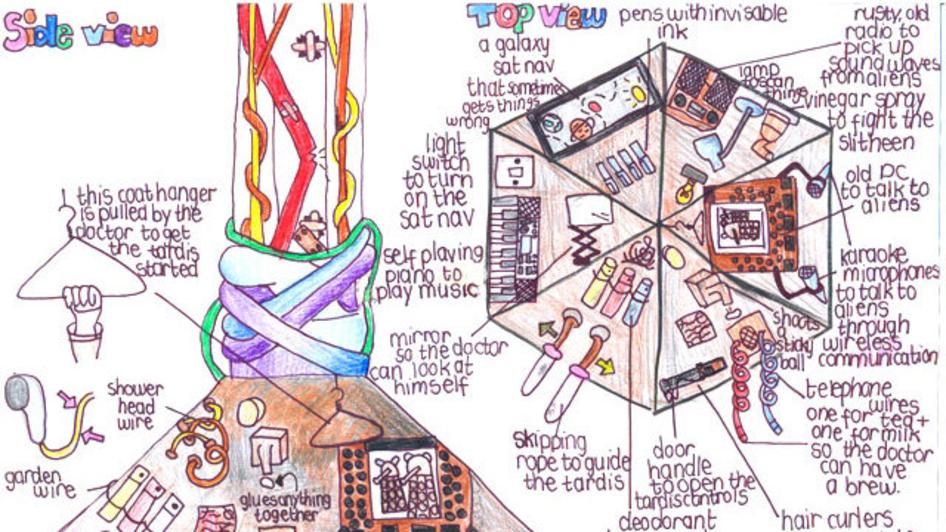 Side view
this coathanger
is pulled by the
doctor to get
the tardis
started
shower
head
wire
garden
wire
gluesanything
together
Top view
pens with invisable
ink
a galaxy
sat nav
that sometimes
gets things
wrong
light
switch
to turn
on the
sat nav
self playing
piano to
play music
mirror
so the doctor
can look at
himself
skipping
rope to guide
the tardis
door
handle
to open the
tardis controls
deodorant
hair curlers
rusty, old
radio to
pick up
sound waves
from aliens
lamp
to scan
things
vinegar spray
to fight the
slitheen
old PC
to talk to
aliens
karaoke
microphones
to talk to
aliens
through
wireless
communication
shoots
a
sticky
ball
telephone
wires
one for tea +
one for milk
so the doctor
can have
a brew.